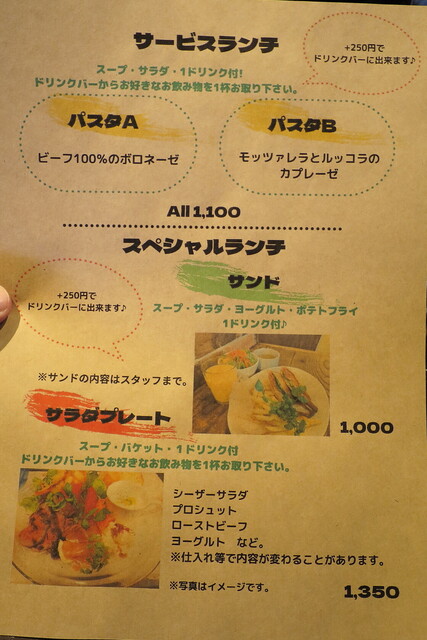 サービスランチ
+250円で
ドリンクバーに出来ます♪
スープ・サラダ・1ドリンク付!
ドリンクバーからお好きなお飲み物を1杯お取り下さい。
パスタA
ビーフ100%のボロネーゼ
パスタB
モッツァレラとルッコラの
カプレーゼ
All 1,100
スペシャルランチ
+250円で
ドリンクバーに出来ます♪
サンド
スープ・サラダ・ヨーグルト・ポテトフライ
1ドリンク付♪
※サンドの内容はスタッフまで。
1,000
サラダプレート
スープ・バケット・1ドリンク付
ドリンクバーからお好きなお飲み物を1杯お取り下さい。
シーザーサラダ
プロシュット
ローストビーフ
ヨーグルト など。
※仕入れ等で内容が変わることがあります。
※写真はイメージです。
1,350